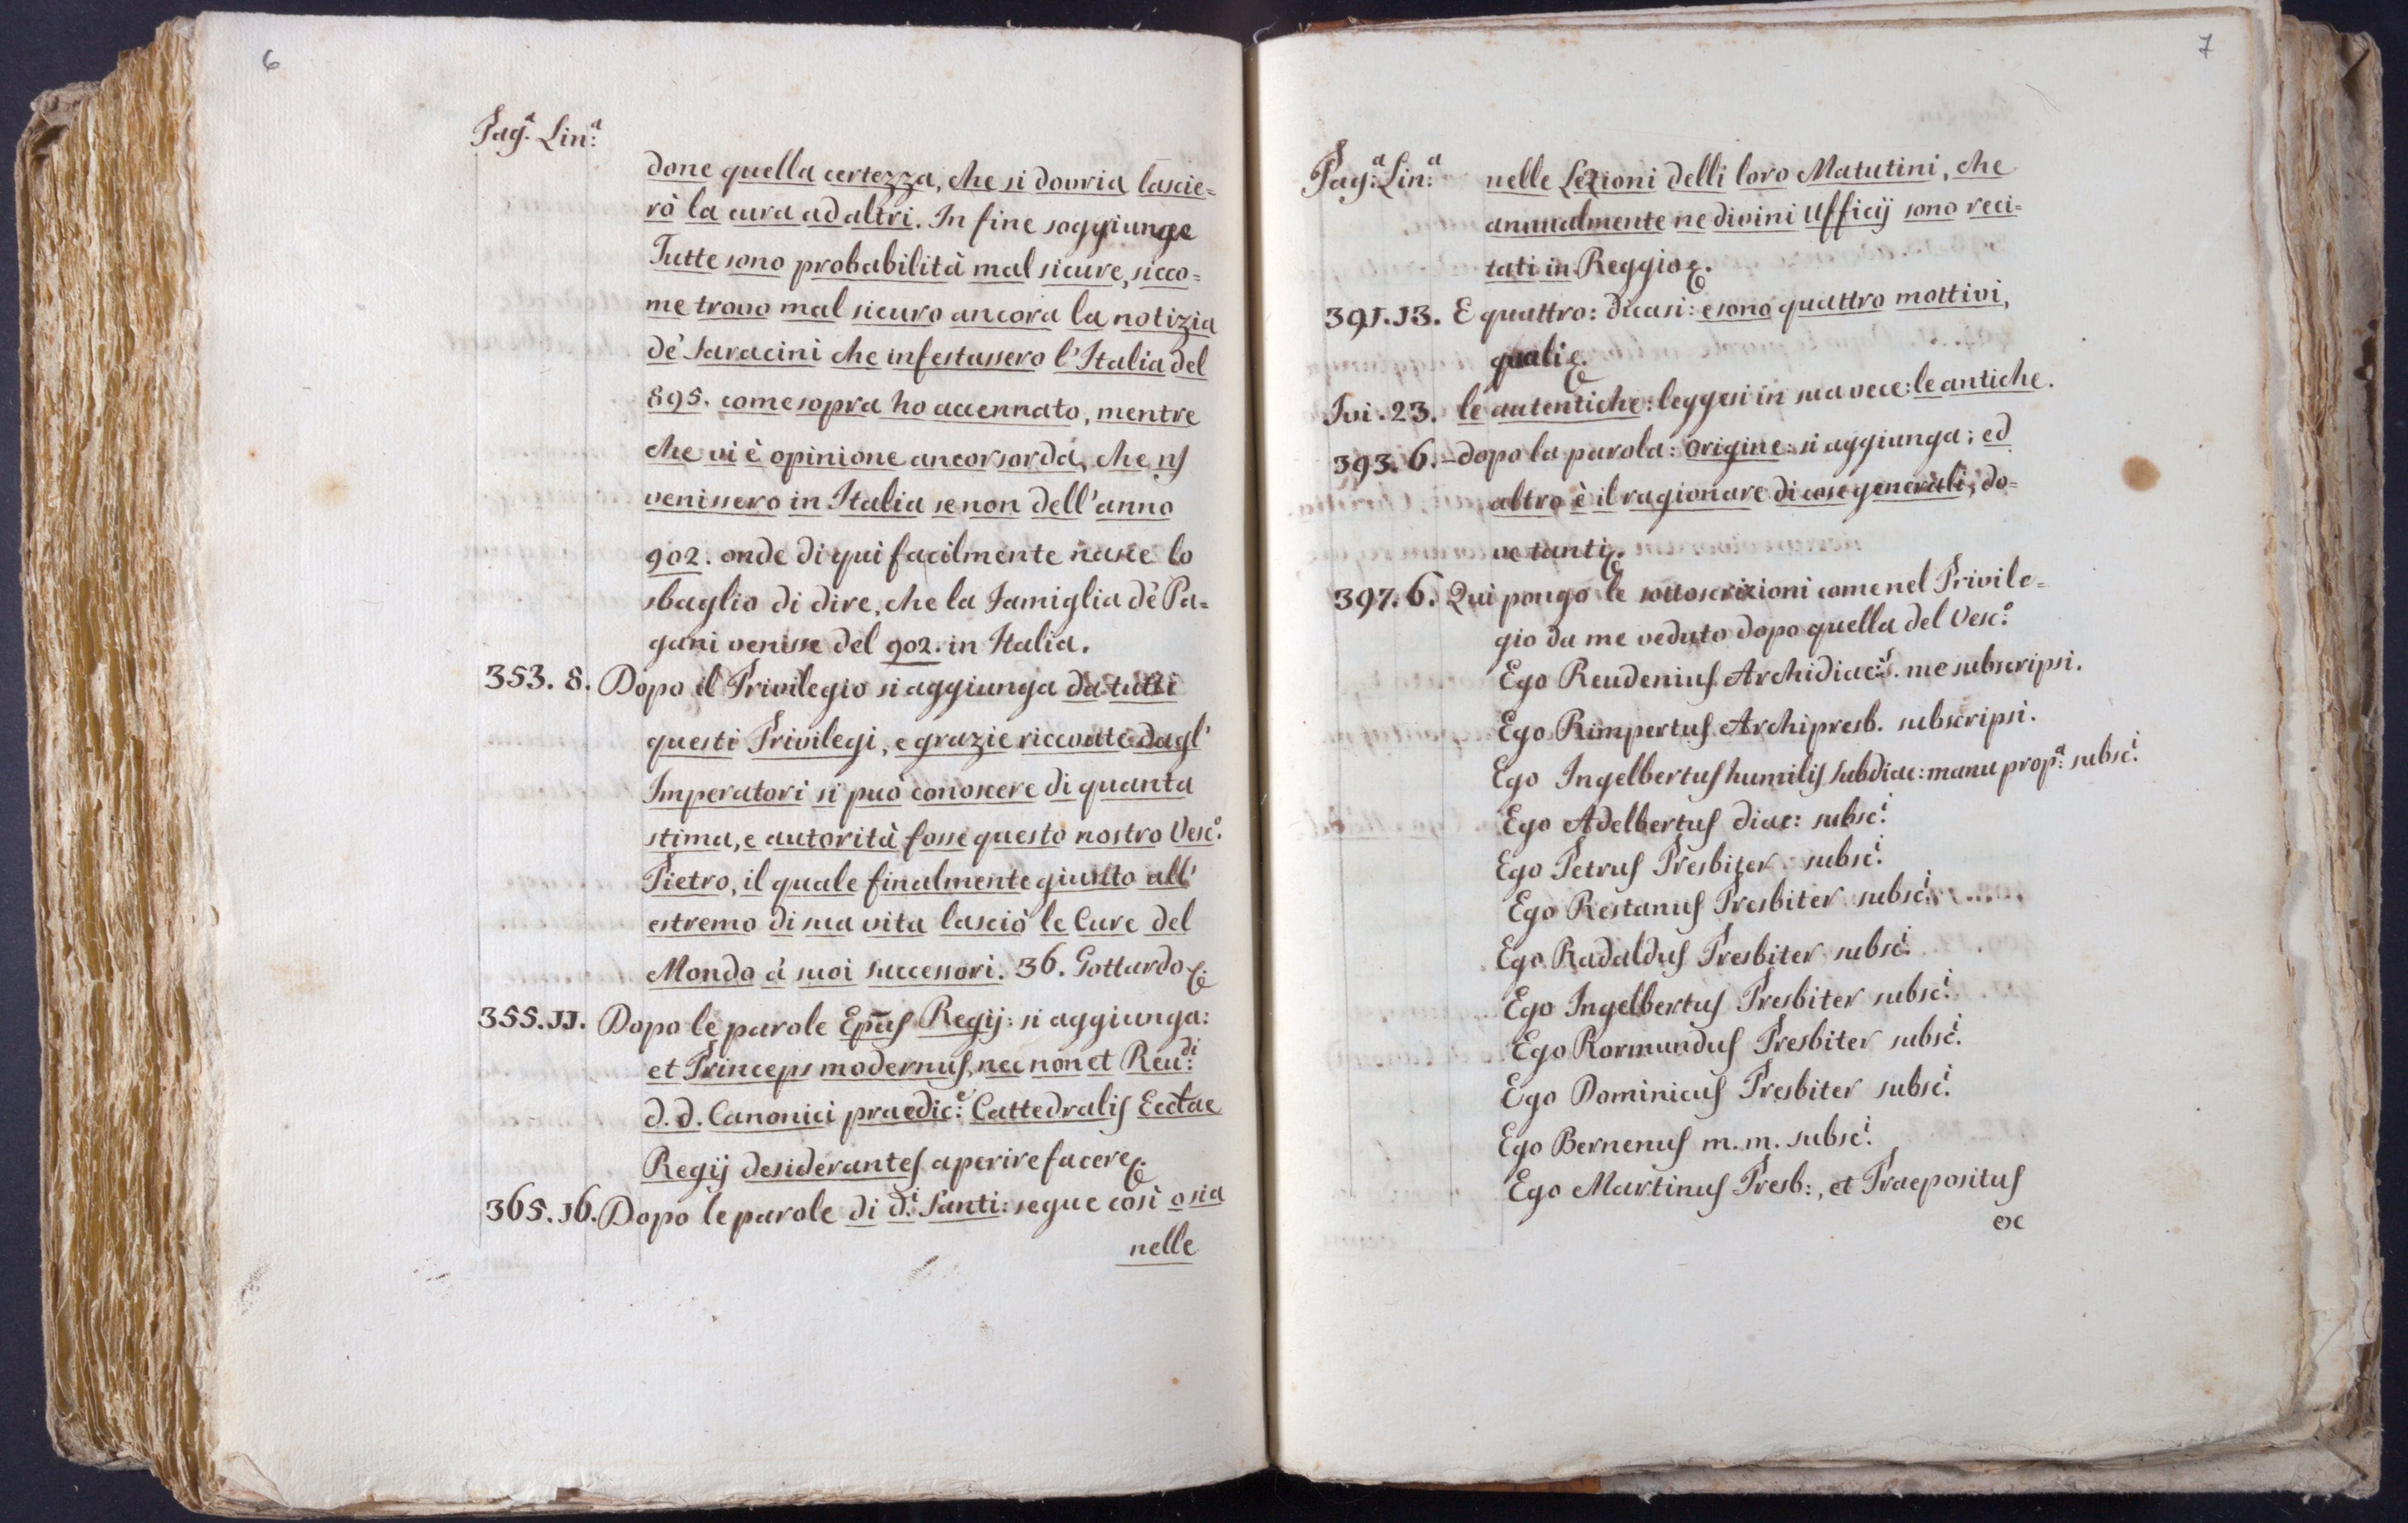 6
Pag.ª Lin:ª
done quella certezza, che si douria lascie=
rò la cura ad altri. In fine soggiunge
Tutte sono probabilità mal sicure, sicco=
me trovo mal sicuro ancora la notizia
de' Saracini che infestassero l'Italia del
895. come sopra ho accennato, mentre
che vi è opinione ancorsorda, che nſ
venissero in Italia se non dell'anno
902. onde di qui facilmente nasce lo
sbaglio di dire, che la Famiglia de' Pa=
gani venisse del 902. in Italia.
353. 8. Dopo il Privilegio si aggiunga da tutti
questi Privilegi, e grazie riceoute dagl'
Imperatori si può conoscere di quanta
stima, e autorità fosse questo nostro Vesc:º
Pietro, il quale finalmente giunto all'
estremo di sua vita lasciò le Cure del
Mondo à suoi successori. 36. Gottardo &.
355. 11. Dopo le parole Epũs Regij: si aggiunga:
et Princeps modernus, nec non et Reu:di
d. d. Canonici praedic:e Cattedralis Ecctae
Regij desiderantes aperire facere &.
365. 16. Dopo le parole di d.i Santi: segue così o sia
nelle
7
Pag:ª Lin:ª
nelle Lezioni delli loro Matutini, che
annualmente ne divini Ufficij sono reci=
tati in Reggio &.
391. 13. E quattro: dicasi: e sono quattro mottivi,
quali &.
Ivi. 23. le autentiche: leggesi in sua vece: le antiche.
393. 6. - dopo la parola: origine: si aggiunga; ed
altro è il ragionare di cose generali, do=
ve tanti &.
397. 6. Qui pongo le sottoscrizioni come nel Privile=
gio da me veduto dopo quella del Vesc:º
Ego Reudenius Archidiac:s. me subscripsi.
Ego Rimpertus Archipresb. subscripsi.
Ego Ingelbertus humilis subdiac: manu prop:ª subsc:i
Ego Adelbertus diac: subsc:i
Ego Petrus Presbiter subsc:i
Ego Restanus Presbiter subsc:i
Ego Radaldus Presbiter subsc:i
Ego Ingelbertus Presbiter subsc:i
Ego Rormundus Presbiter subsc:i
Ego Dominicus Presbiter subsc:i
Ego Bernenus m. m. subsc:i
Ego Martinus Presb:, et Praepositus
ex